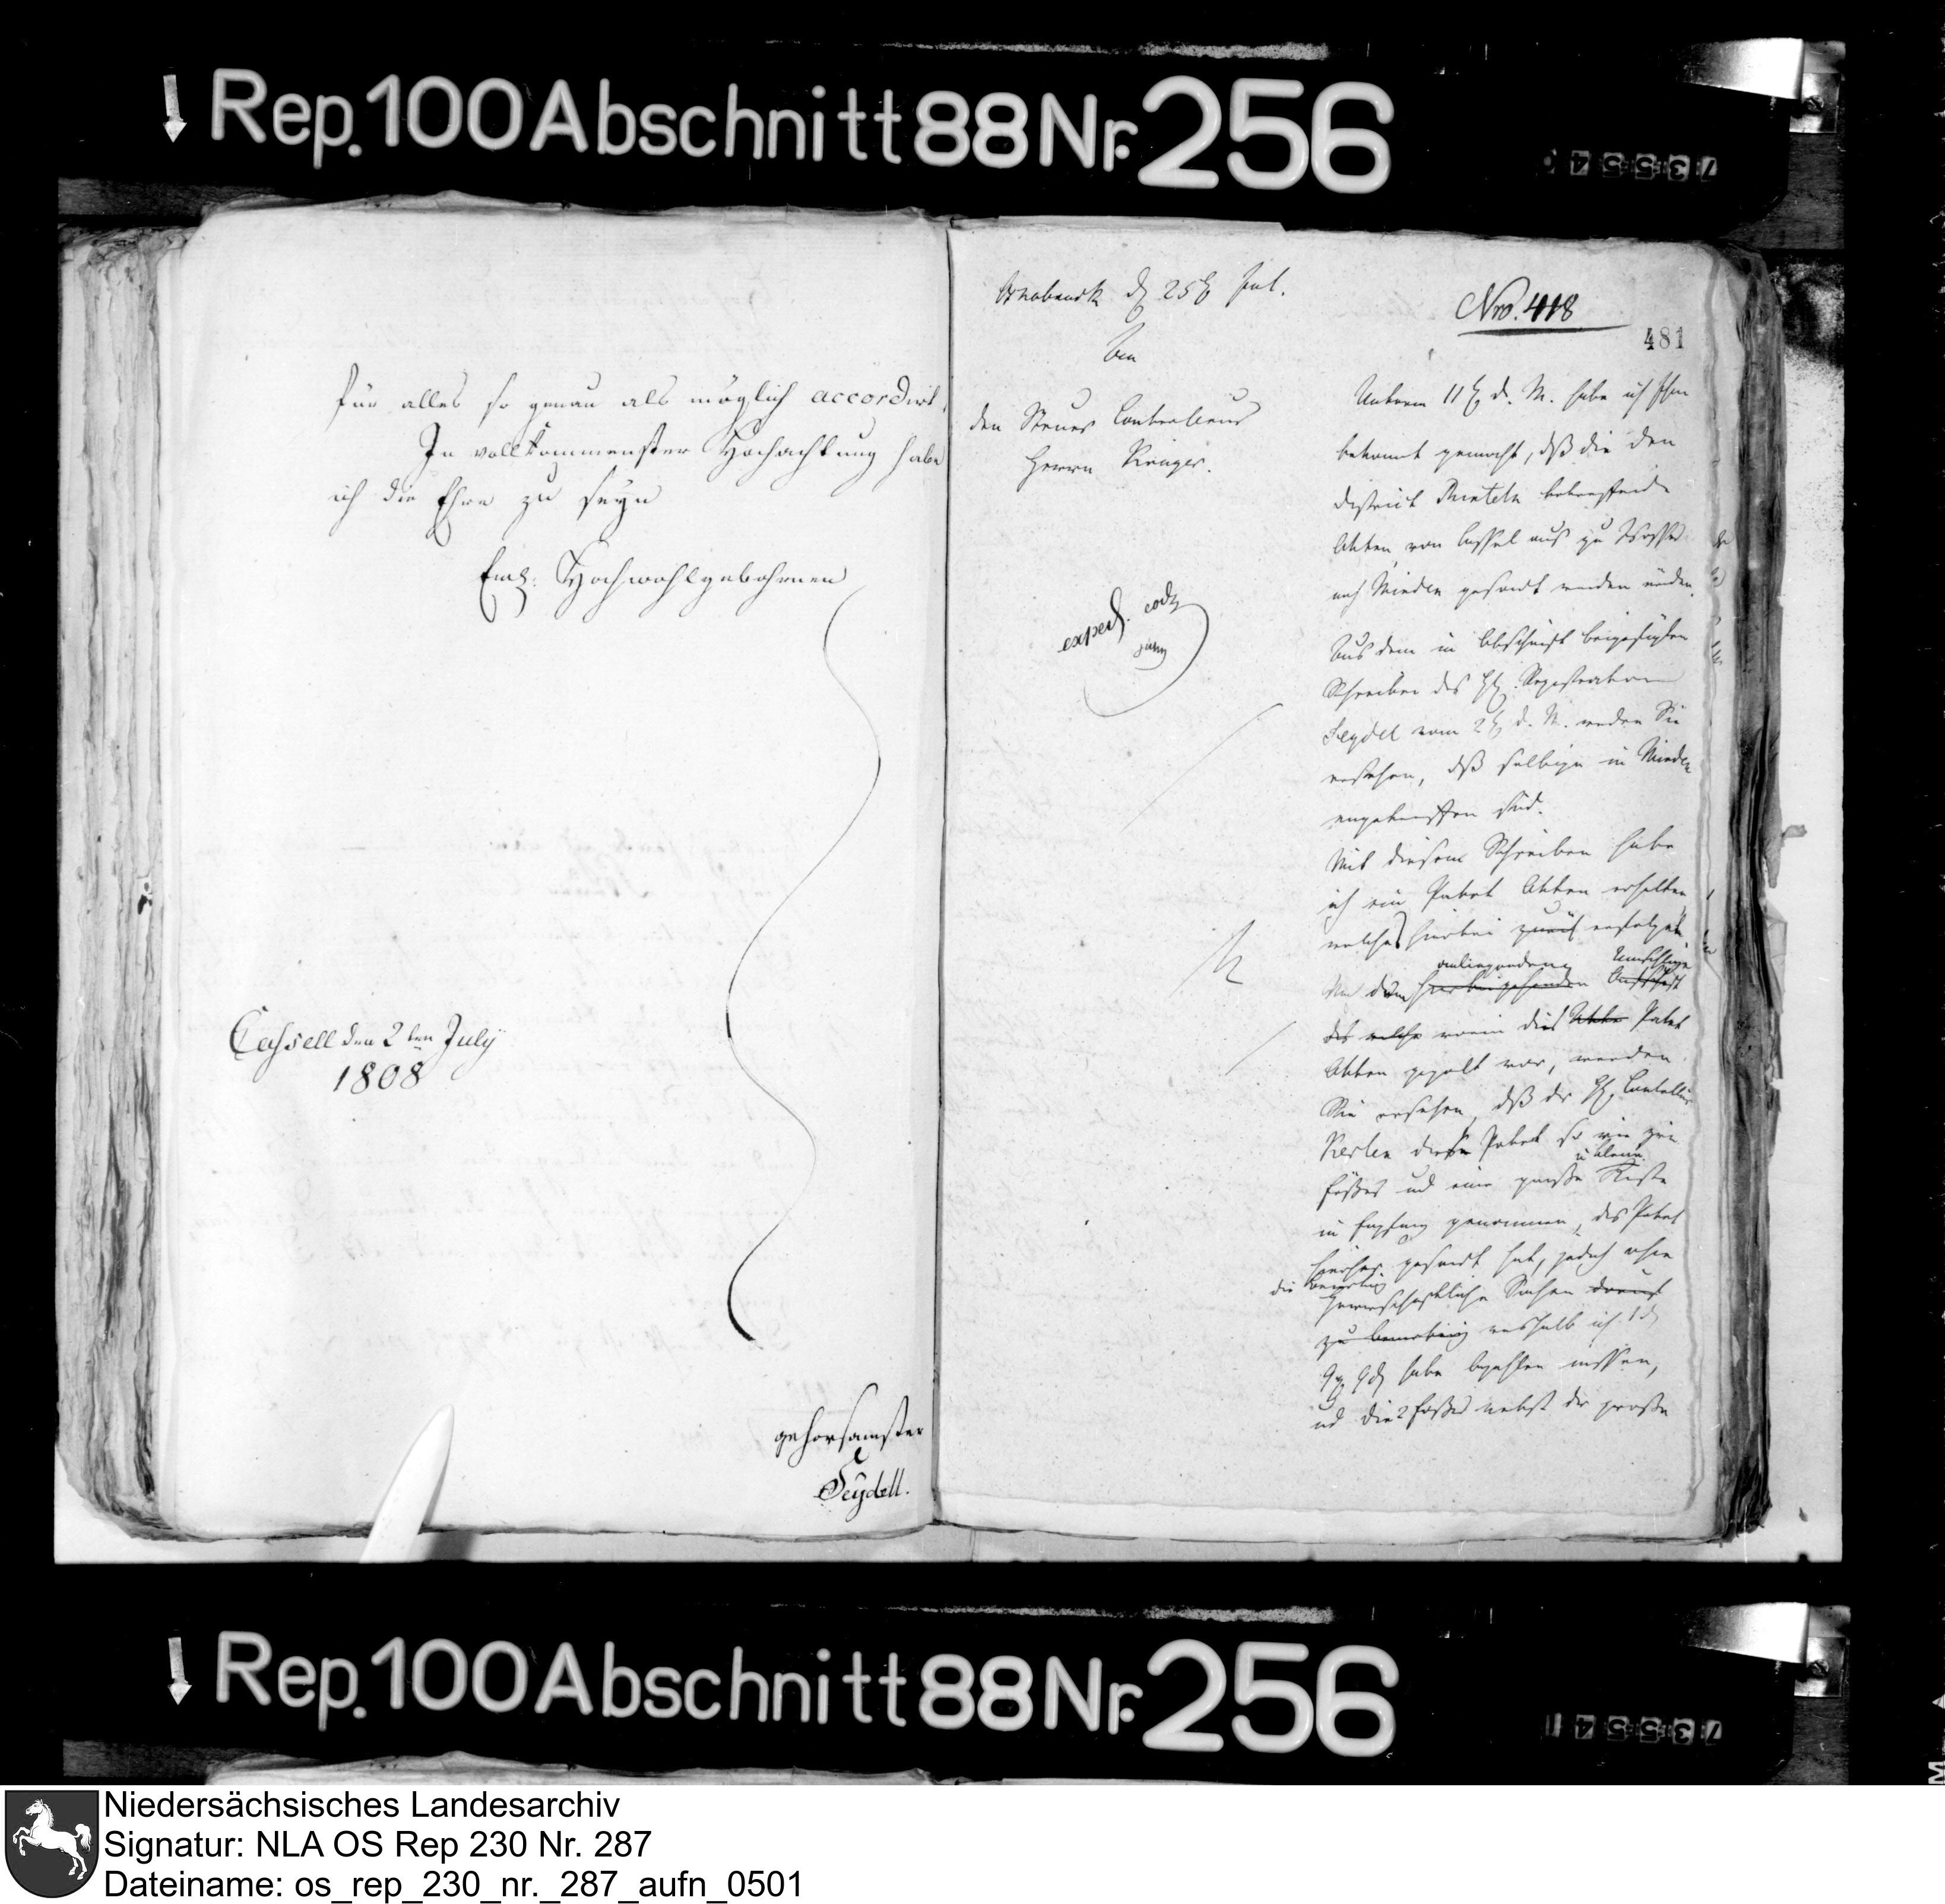 Rep. 100 Abschnitt 88 Nr. 256
735540
für alles so genau als möglich accordirt.
In vollkommenster Hochachtung habe
ich die Ehre zu seyn
Ew. Hochwohlgebohrnen
Cassell den 2ten July
1808
gehorsamster
Seydell.
Osnabrück d 25t Jul.
An
den Steuer Controlleur
Herrn Krüger.
exped. eod.
Nro. 418
481
Unterm 11t d. M. habe ich Ihnen
bekannt gemacht, daß die den
District Rinteln betreffende
Akten von Cassel aus zu Wasser
nach Minden gesandt werden würden.
Aus dem in Abschrift beigefügten
Schreiben des H. Registrators
Seydel vom 2t d. M. werden Sie
ersehen, daß selbige in Minden
angekommen sind.
Mit diesem Schreiben habe
ich ein Paket Akten erhalten
welches hierbei zurück erfolgt.
anliegenden Umschlage
dem hierbeigehenden
des welche worin dies Akten Paket
Akten gehült war, werden
Sie ersehen, daß der H. Controlleur
Kerlen dieses Paket so wie zwei
u kleine
Fässer und eine große Kiste
in Empfang genommen, das Paket
hierher gesandt hat, jedoch ohne
die Bemerkung
Herrschaftliche Sachen darauf
zu bemerken weshalb ich 1
habe bezahlen müssen,
und die 2 Fässer nebst der große
Rep. 100 Abschnitt 88 Nr. 256
735541
Niedersächsisches Landesarchiv
Signatur: NLA OS Rep 230 Nr. 287
Dateiname: os_rep_230_nr._287_aufn_0501